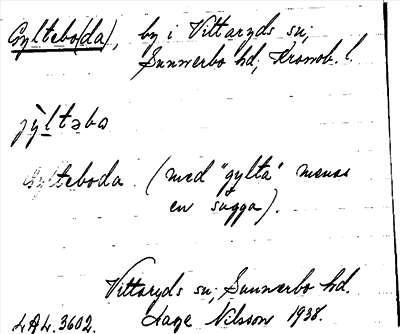 Gyltebo(da), by i Vittaryds sn,
Sunnerbo hd, Kronob. l.
jỳltəbo
Gylteboda. (med "gylta" menas
en sugga).
Vittaryds sn, Sunnerbo hd.
LAL. 3602. Lage Nilsson 1938.